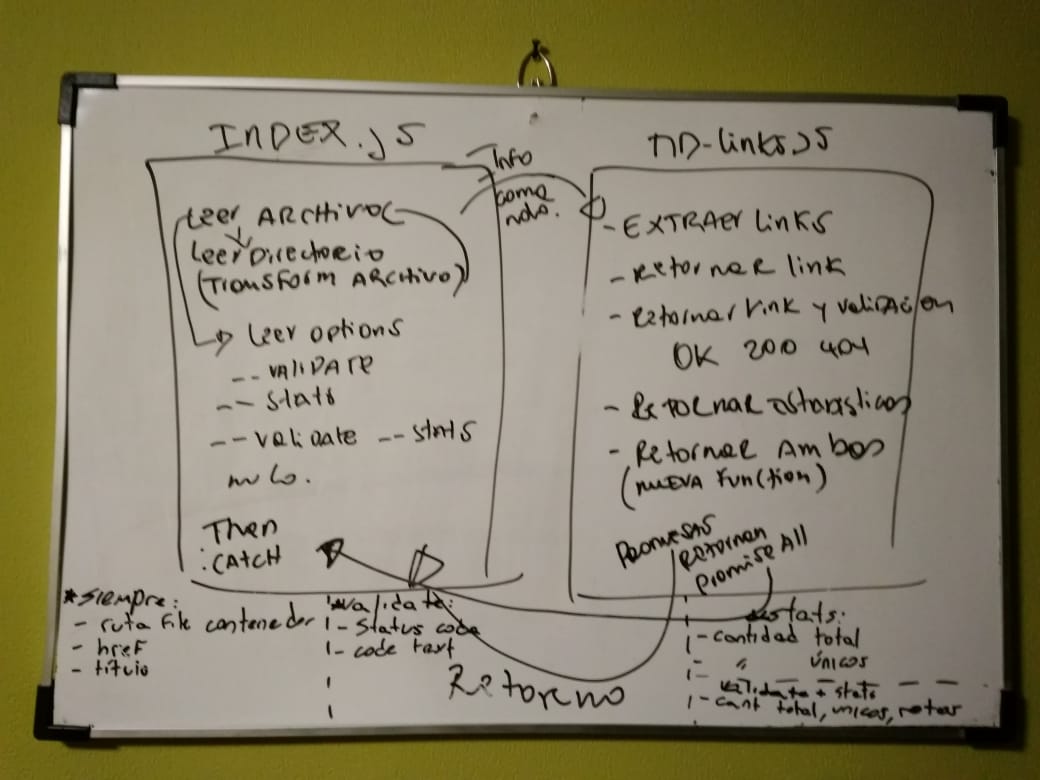 INDEX.js
Leer ARCHIVOC
Leer Directorio
(Transform ARCHIVO)
Leer options
-- VALIDATE
-- Stats
-- Validate -- stats
Then
.CATCH
Info
coma
ndo.
MD-links.JS
- EXTRAER LINKS
- Retornar link
- Retornar link y validación
OK 200 404
- Retornar estadísticas
- Retornar Ambos
(NUEVA Function)
Promesas
Retornan
Promise All
Retorno
*Siempre:
- ruta File contenedor
- href
- título
Validate:
- Status code
- code text
stats:
- cantidad total
- " únicos
- validate + stats
- cant total, unicos, rotos